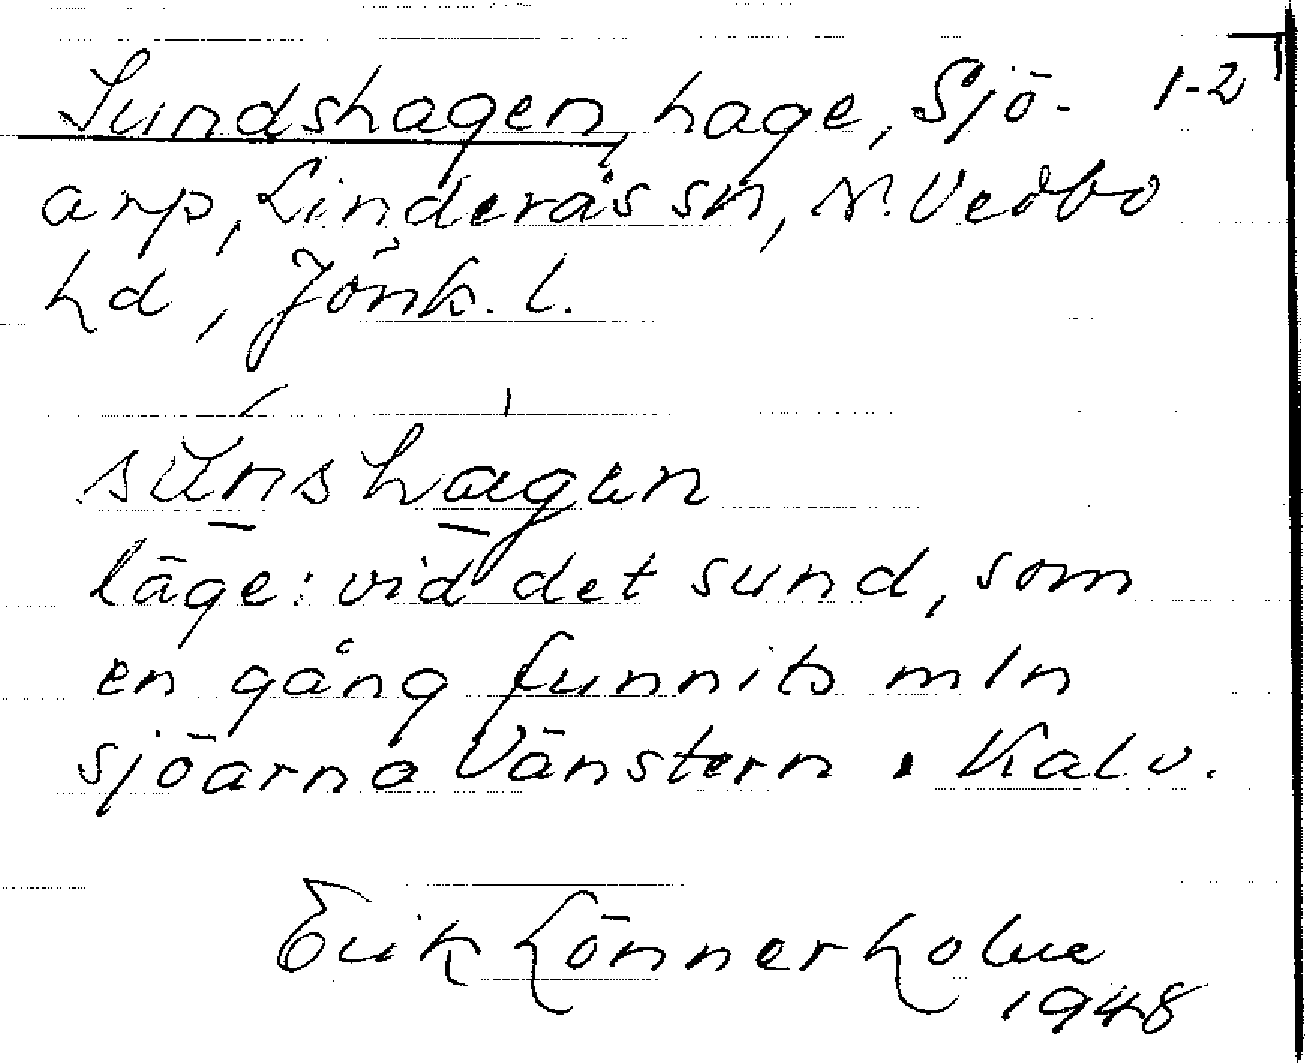 Sundshagen, hage, Sjö- 1-2
arp, Linderås sn, N. Vedbo
hd, Jönk. l.
sunshagen
läge: vid det sund, som
en gång funnits mln
sjöarna Vänstern . Kalv.
Erik Lönnerholm
1948